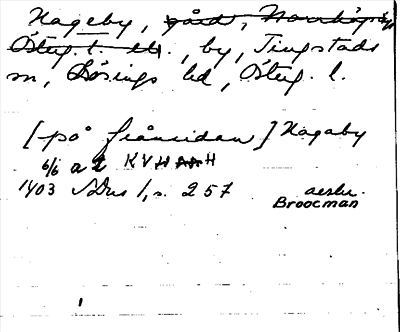 Hageby, gård, Norrköping
Östug. l. etc., by, Tingstads
sn, Lösings hd, Östug. l.
[på frånsidan] Hagaby
6/6 at KVHAAH
1403 SDns 1, s. 257 aesbr.
Broocman